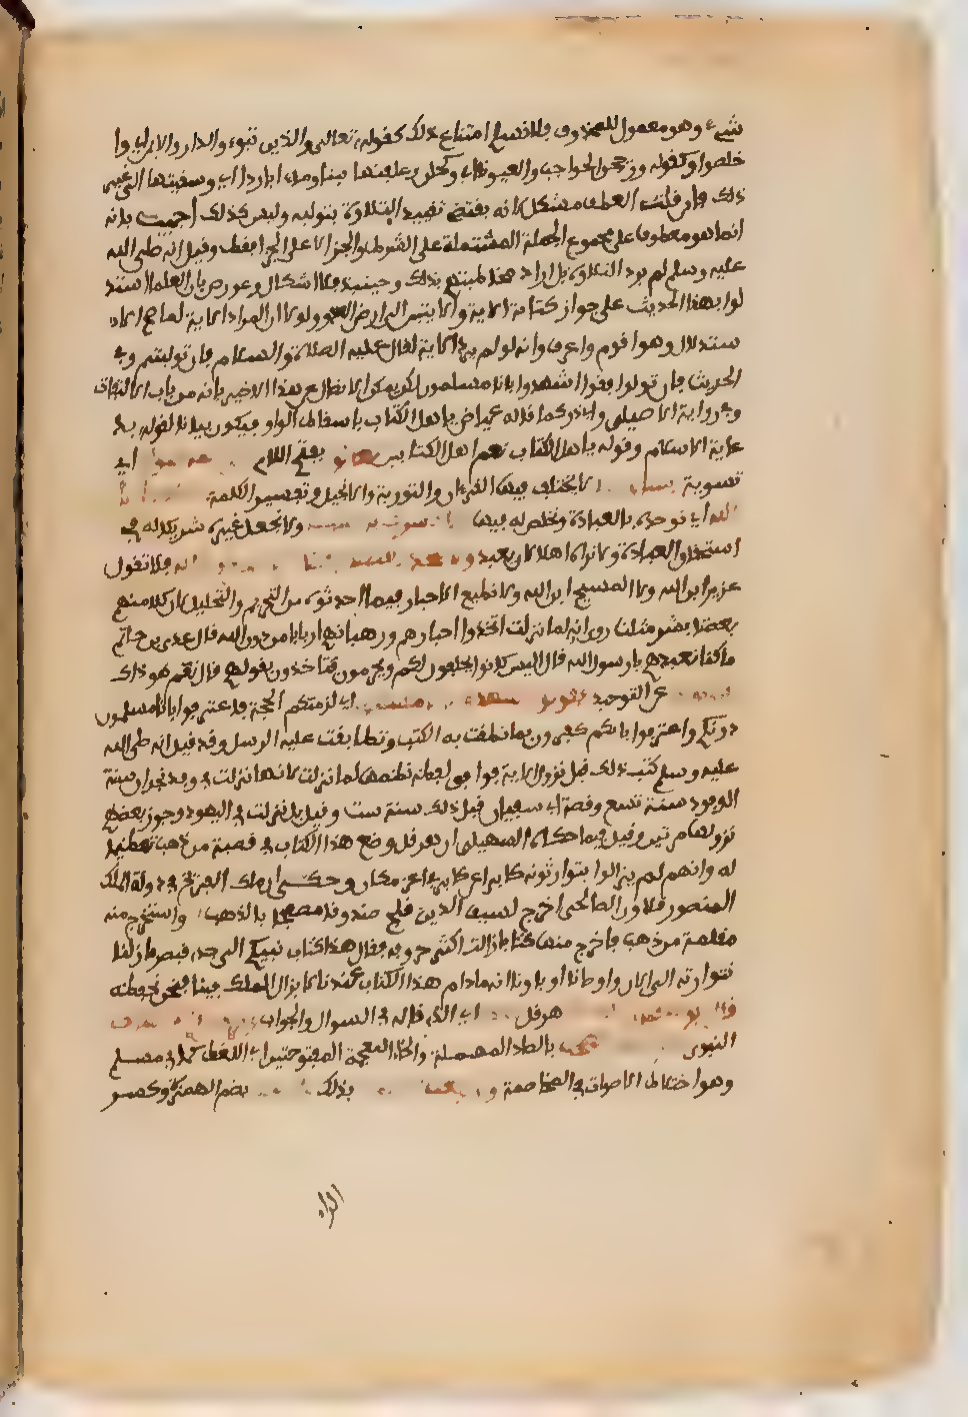 شيء وهو معمول للمحذوف فلا نسلم امتناع ذلك كقوله تعالى والذين تبوءو الدار والايمان وا
خلصوا وكقوله وزججن الحواجب والعيونا اي وكحلن وعلفتها تبنا وماء باردا اي وسقيتها الى غير
ذلك فان قلت العطف مشكل لانه يقتضي تقييد التلاوة بتوليهم وليس كذلك اجيب بانه
انما هو معطوف على مجموع الجملة المشتملة على الشرط والجزا لا على الجزا فقط وقيل انه صلى الله
عليه وسلم لم يرد التلاوة بل اراد بذلك وحينيذ فلا اشكال وعورض بان العلما استد
لوا بهذا الحديث على جواز كتابة الاية والايتين الى ارض العدو ولولا ان المراد الاية لما صح الا
ستدلال وهم اقوم واعرف وانه لو لم يرد الاية لقال عليه الصلاة والسلام فان توليتم وفي
الحديث فان تولوا فقولوا اشهدوا بانا مسلمون لكن يمكن الانفصال عن هذا الاخير بانه من باب الالتفات
وفي رواية الاصيلي وابي ذر كما قاله عياض يا هل الكتاب باسقاط الواو فيكون بيانا لقوله بد
عاية الاسلام وقوله يا هل الكتاب نعم اهل الكتابين بفتح اللام اي
تسوية لا يختلف فيها القرءان والتورية والانجيل وتفسير الكلمة
الله اي نوحده بالعبادة ونخلص له فيها ولا نجعل غيره شريكا له في
استحقاق العبادة ولا نراه اهلا لان يعبد فلا نقول
عزير ابن الله ولا المسيح ابن الله ولا نطيع الاحبار فيما احدثوه من التحريم والتحليل لان كلا منهم
بعضنا بشر مثلنا روي انه لما نزلت اتخذوا احبارهم ورهبانهم اربابا من دون الله قال عدي بن حاتم
ما كنا نعبدهم يا رسول الله قال اليس كانوا يحلون لكم ويحرمون فتاخذون بقولهم قال نعم هو ذاك
عن التوحيد اي لزمتكم الحجة فاعترفوا بانا مسلمون
دونكم واعترفوا بانكم كفرون بما نطقت به الكتب وتطابقت عليه الرسل وقد قيل انه صلى الله
عليه وسلم كتب ذلك قبل نزول الاية فوافق لفظه نظمها لما نزلت لانها نزلت في وفد نجران سنة
الوفود سنة تسع وقصة ابي سفيان قبل ذلك سنة ست وقيل بل نزلت في اليهود وجوز بعضهم
نزولها مرتين وقيل فيما حكاه السهيلي ان هرقل وضع هذا الكتاب في قصبة من ذهب تعظيما
له وانهم لم يزالوا يتوارثونه كابرا عن كابر في اعز مكان وحكى ان ملك الفرنج في دولة الملك
المنصور قلاون الصالحي اخرج لسيف الدين قلج صندوقا مصفحا بالذهب واستخرج منه
مقلمة من ذهب فاخرج منها كتابا زالت اكثر حروفه فقال هذا كتاب نبيكم الى جدي قيصر ما زلنا
نتوارثه الى الان واوصانا اباونا انه ما دام هذا الكتاب عندنا لا يزال الملك فينا فنحن نحفظه
هرقل اي الذي قاله في السوال والجواب
النبوي بالصاد المهملة والخاء المعجمة المفتوحتين اي اللغط كما في مسلم
وهو اختلاط الاصوات في المخاصمة و بذلك بضم الهمزة وكسر
الراء